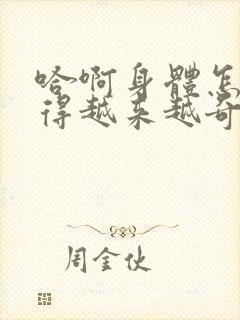 哈啊身體怎
得越来越奇
周金伙